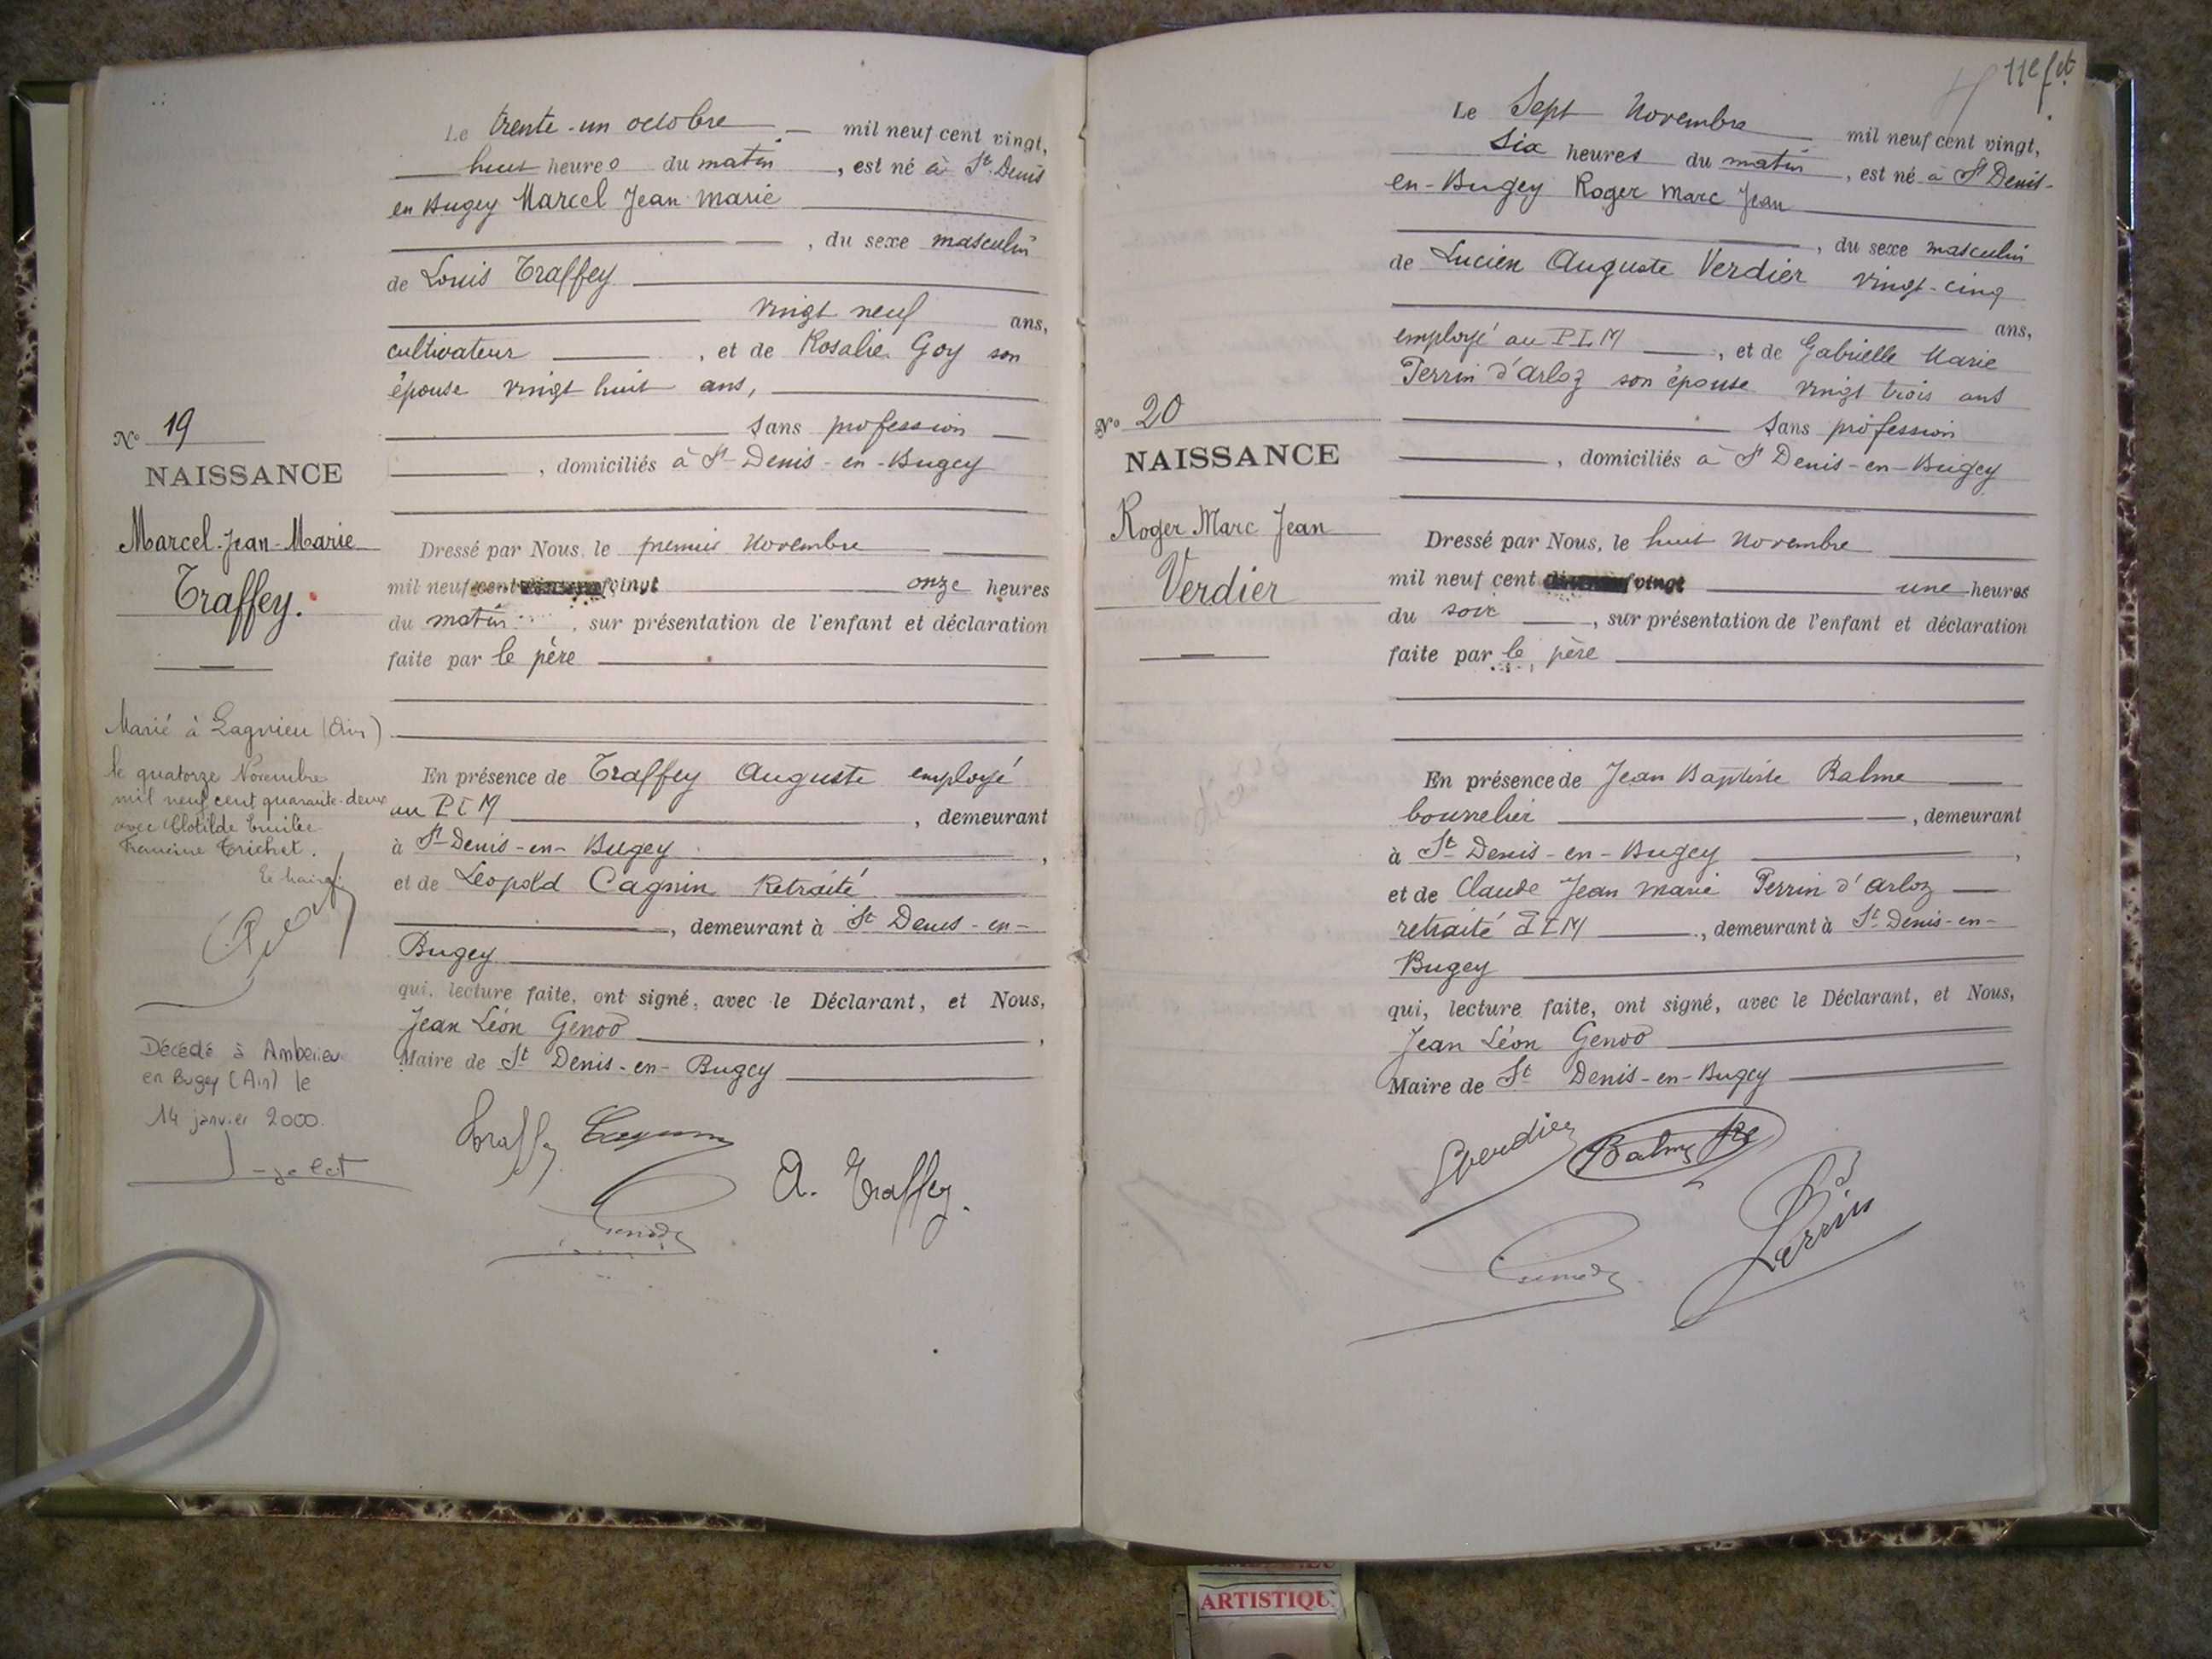 Le trente-un octobre mil neuf cent vingt,
huit heures du matin, est né à St Denis
en Bugey Marcel Jean Marie
, du sexe masculin
de Louis Traffey
vingt neuf ans,
cultivateur, et de Rosalie Goy son
épouse vingt huit ans,
sans profession
, domiciliés à St-Denis-en-Bugey
No 19
NAISSANCE
Marcel-Jean-Marie
Traffey.
Dressé par Nous, le premier Novembre
mil neuf cent vingt onze heures
du matin, sur présentation de l'enfant et déclaration
faite par le père
Marié à Lagnieu (Ain)
le quatorze Novembre
mil neuf cent quarante-deux
avec Clotilde Emilie
Francine Trichet.
Le Maire
En présence de Traffey Auguste employé
au PLM, demeurant
à St-Denis-en-Bugey,
et de Léopold Cagnin Retraité
, demeurant à St Denis-en-
Bugey
qui, lecture faite, ont signé, avec le Déclarant, et Nous,
Jean Léon Genod,
Maire de St Denis-en-Bugey
Décédé à Ambérieu
en Bugey (Ain) le
14 janvier 2000.
Traffey Cagnin
A. Traffey.
Genod
11e fet
Le Sept Novembre mil neuf cent vingt,
Six heures du matin, est né à St Denis-
en-Bugey Roger Marc Jean
, du sexe masculin
de Lucien Auguste Verdier vingt-cinq
ans,
employé au PLM, et de Gabrielle Marie
Perrin d'arloz son épouse vingt trois ans
Sans profession
, domiciliés à St Denis-en-Bugey
No 20
NAISSANCE
Roger Marc Jean
Verdier
Dressé par Nous, le huit Novembre
mil neuf cent vingt une heures
du soir, sur présentation de l'enfant et déclaration
faite par le père
En présence de Jean Baptiste Balme
bourrelier, demeurant
à St Denis-en-Bugey,
et de Claude Jean Marie Perrin d'arloz
retraité PLM, demeurant à St Denis-en-
Bugey
qui, lecture faite, ont signé, avec le Déclarant, et Nous,
Jean Léon Genod
Maire de St Denis-en-Bugey
LVerdier Balme
Perrin
Genod
ARTISTIQU